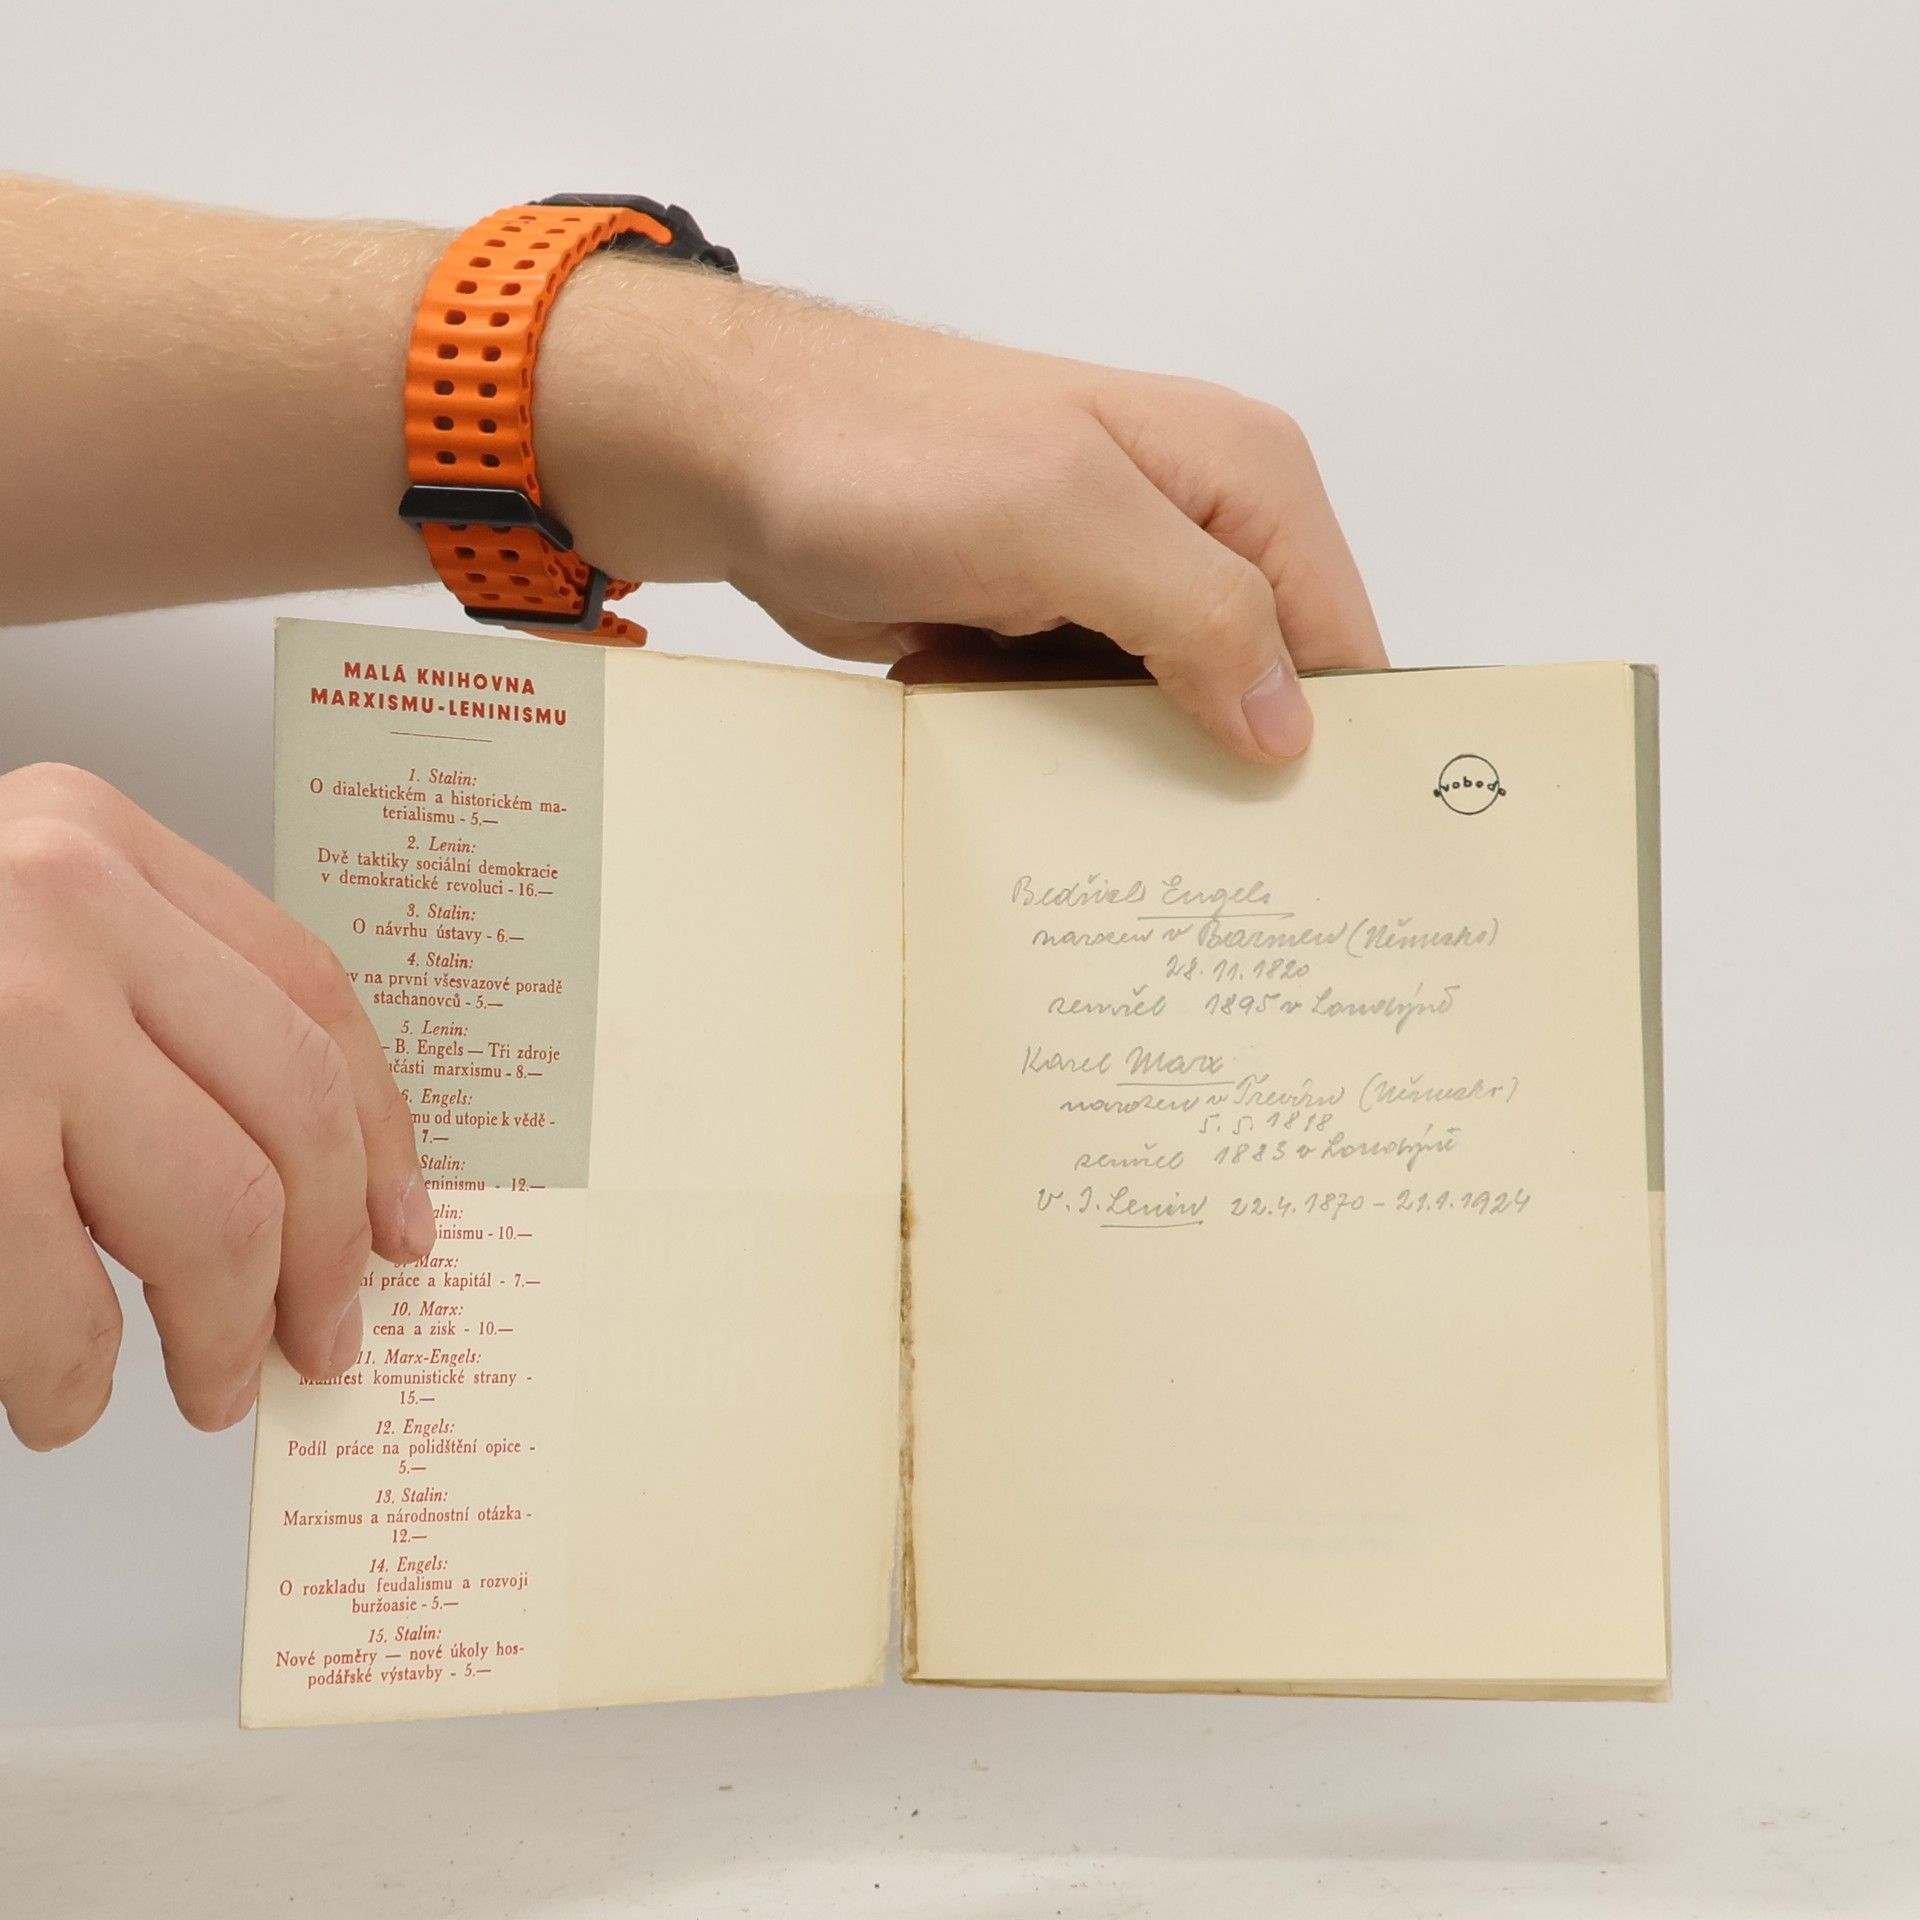 MALÁ KNIHOVNA
MARXISMU-LENINISMU
1. Stalin:
O dialektickém a historickém ma-
terialismu - 5.—
2. Lenin:
Dvě taktiky sociální demokracie
v demokratické revoluci - 16.—
3. Stalin:
O návrhu ústavy - 6.—
4. Stalin:
na první všesvazové poradě
stachanovců - 5.—
5. Lenin:
— B. Engels — Tři zdroje
marxismu - 8.—
6. Engels:
od utopie k vědě -
7.—
Stalin:
- 12.—
- 10.—
Marx:
práce a kapitál - 7.—
10. Marx:
cena a zisk - 10.—
11. Marx-Engels:
Manifest komunistické strany -
15.—
12. Engels:
Podíl práce na polidštění opice -
5.—
13. Stalin:
Marxismus a národnostní otázka -
12.—
14. Engels:
O rozkladu feudalismu a rozvoji
buržoasie - 5.—
15. Stalin:
Nové poměry — nové úkoly hos-
podářské výstavby - 5.—
svoboda
Bedřich Engels
narozen v Barmen (Německo)
28. 11. 1820
zemřel 1895 v Londýně
Karel Marx
narozen v Trevíru (Německo)
5. 5. 1818
zemřel 1883 v Londýně
V. I. Lenin 22.4.1870 - 21.1.1924